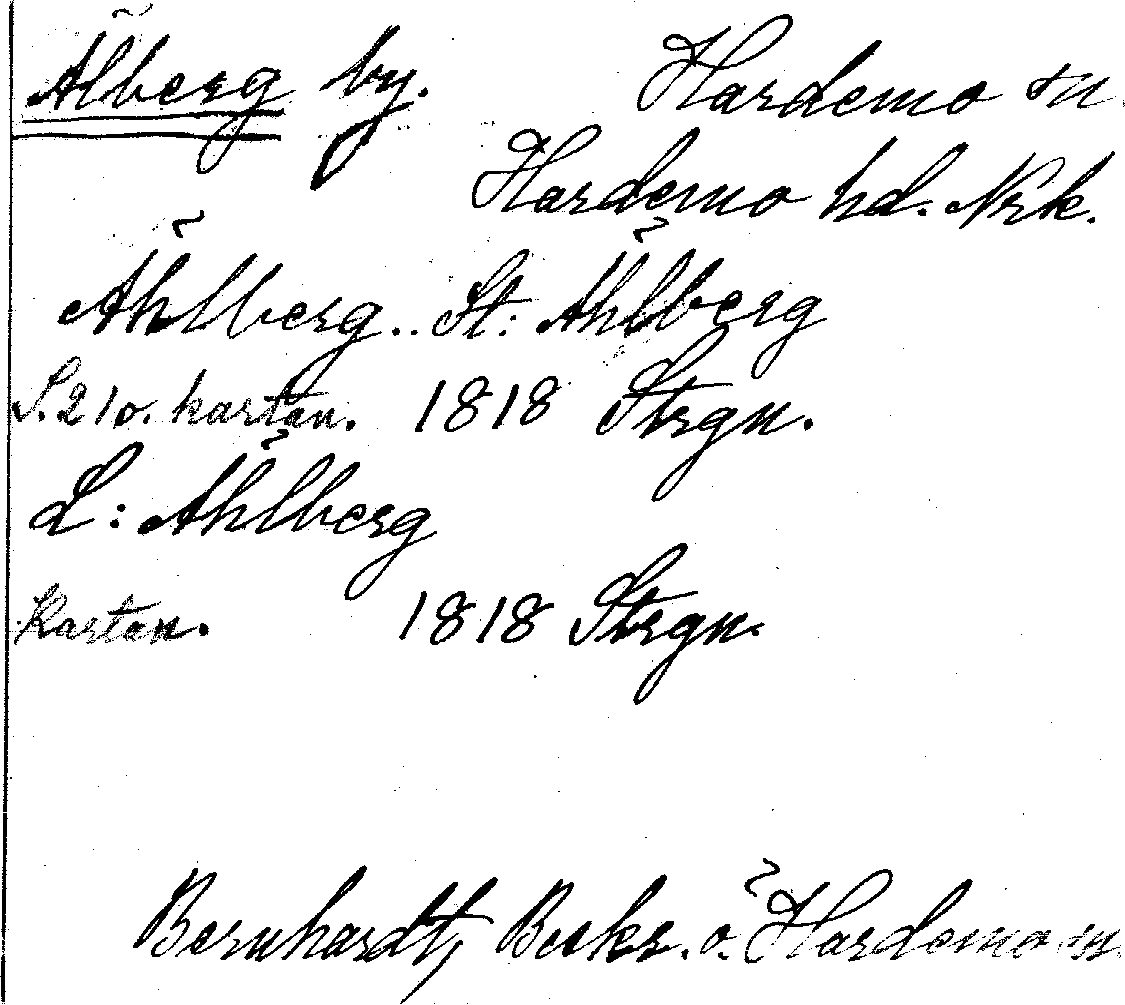 Ålberg by. Hardemo sn
Hardemo hd. Nrk.
Åhlberg.. St: Åhlberg
S.210. kartan. 1818 Strgn.
L: Åhlberg
Kartan. 1818 Strgn.
Bernhardt, Beskr. ö. Hardemo sn.